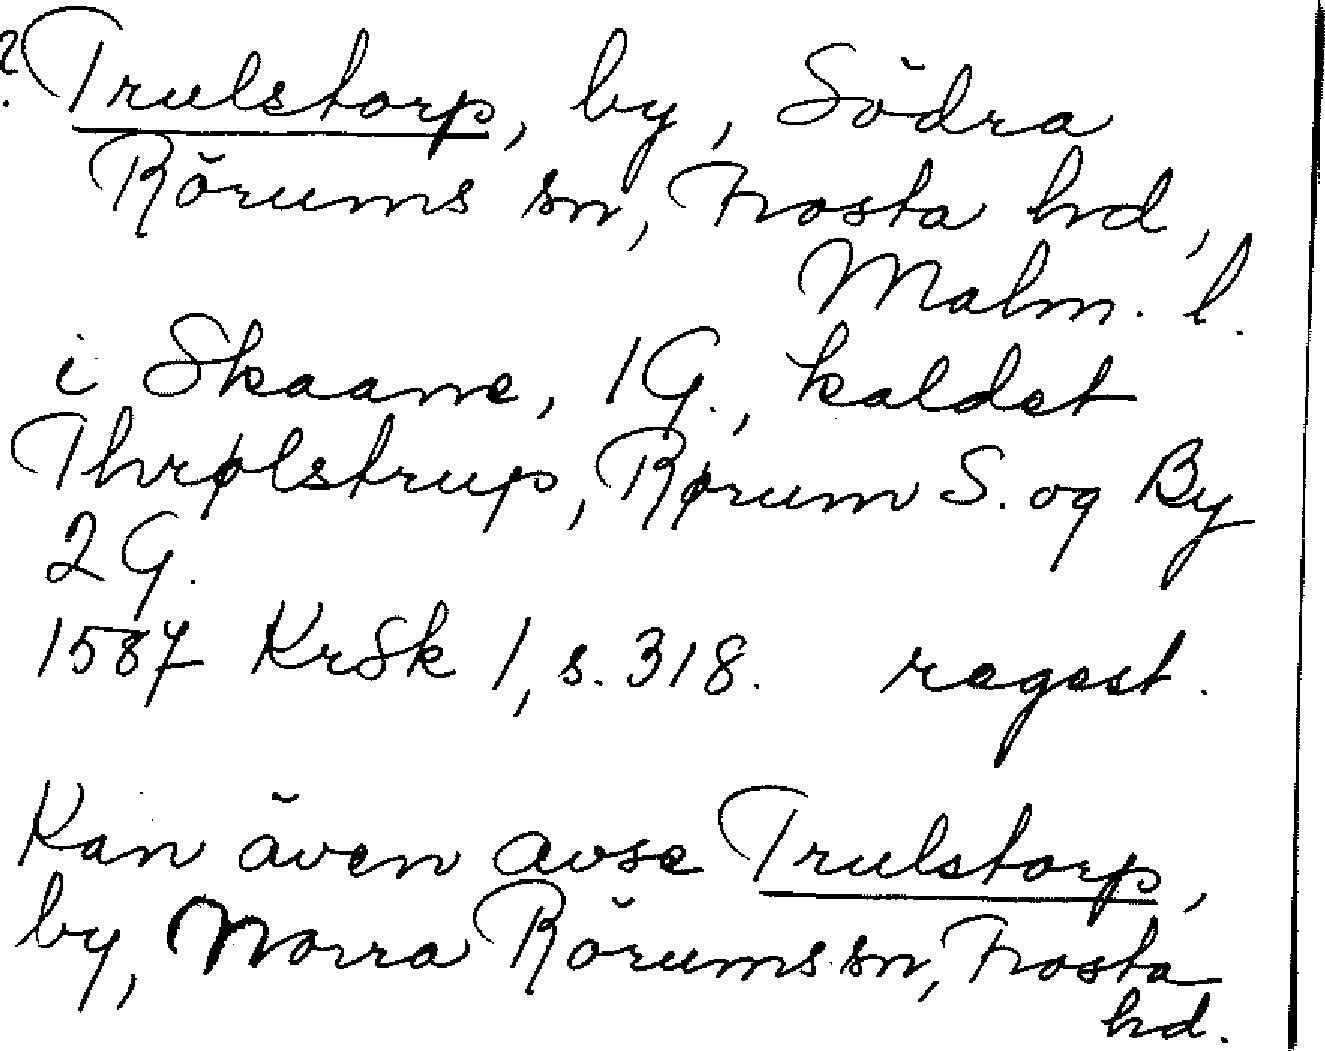 ? Trulstorp, by, Södra
Rörums sn, Frosta hd,
Malm. l.
i Skaane, 1 G., kaldet
Thrølstrup, Rørum S. og By
2 G.
1587 KrSk 1, s. 318. regest.
Kan även avse Trulstorp,
by, Norra Rörums sn, Frosta
hd.